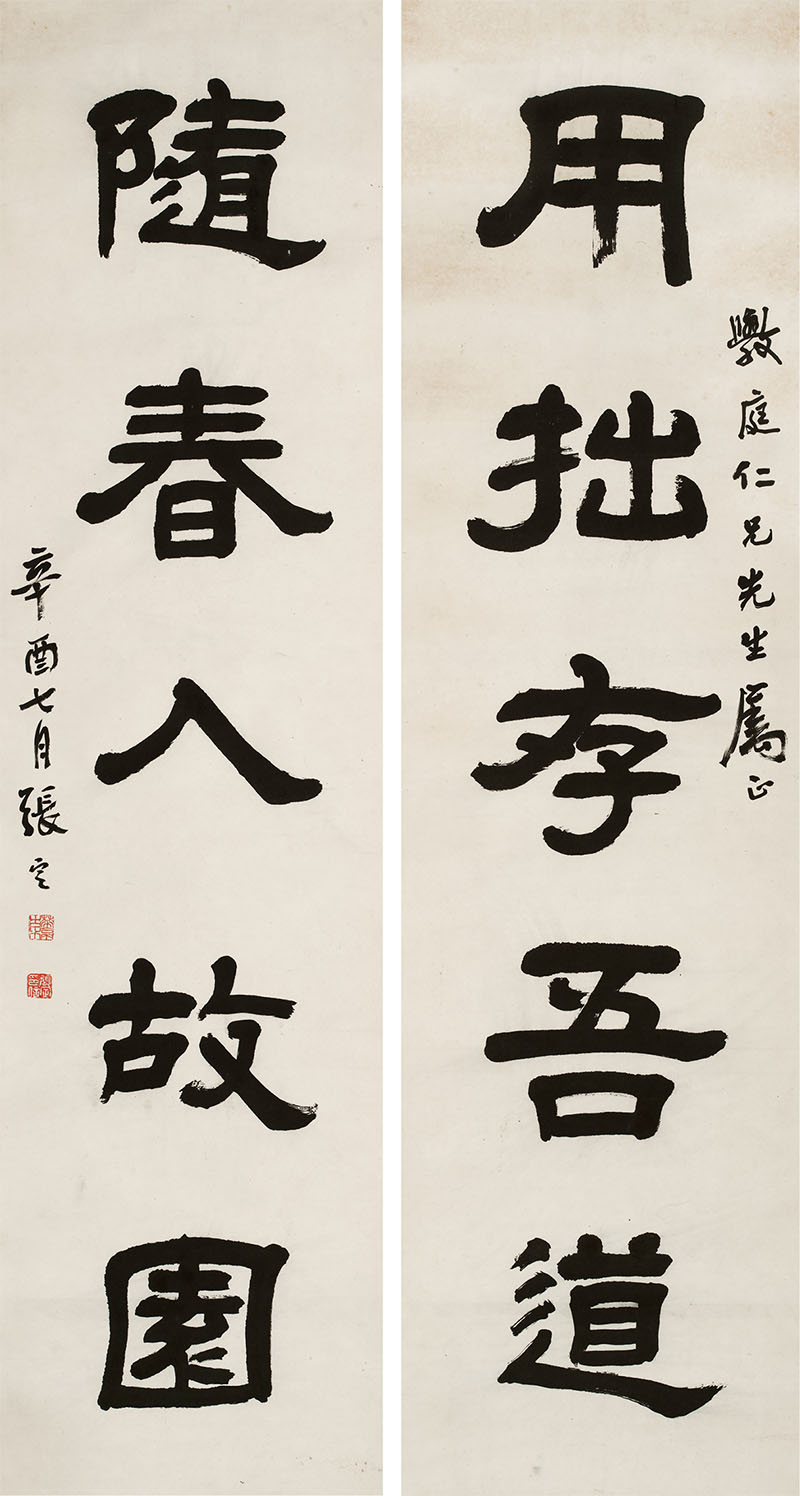 用拙存吾道
庭仁兄先生屬正
隨春入故園
辛酉七月張定